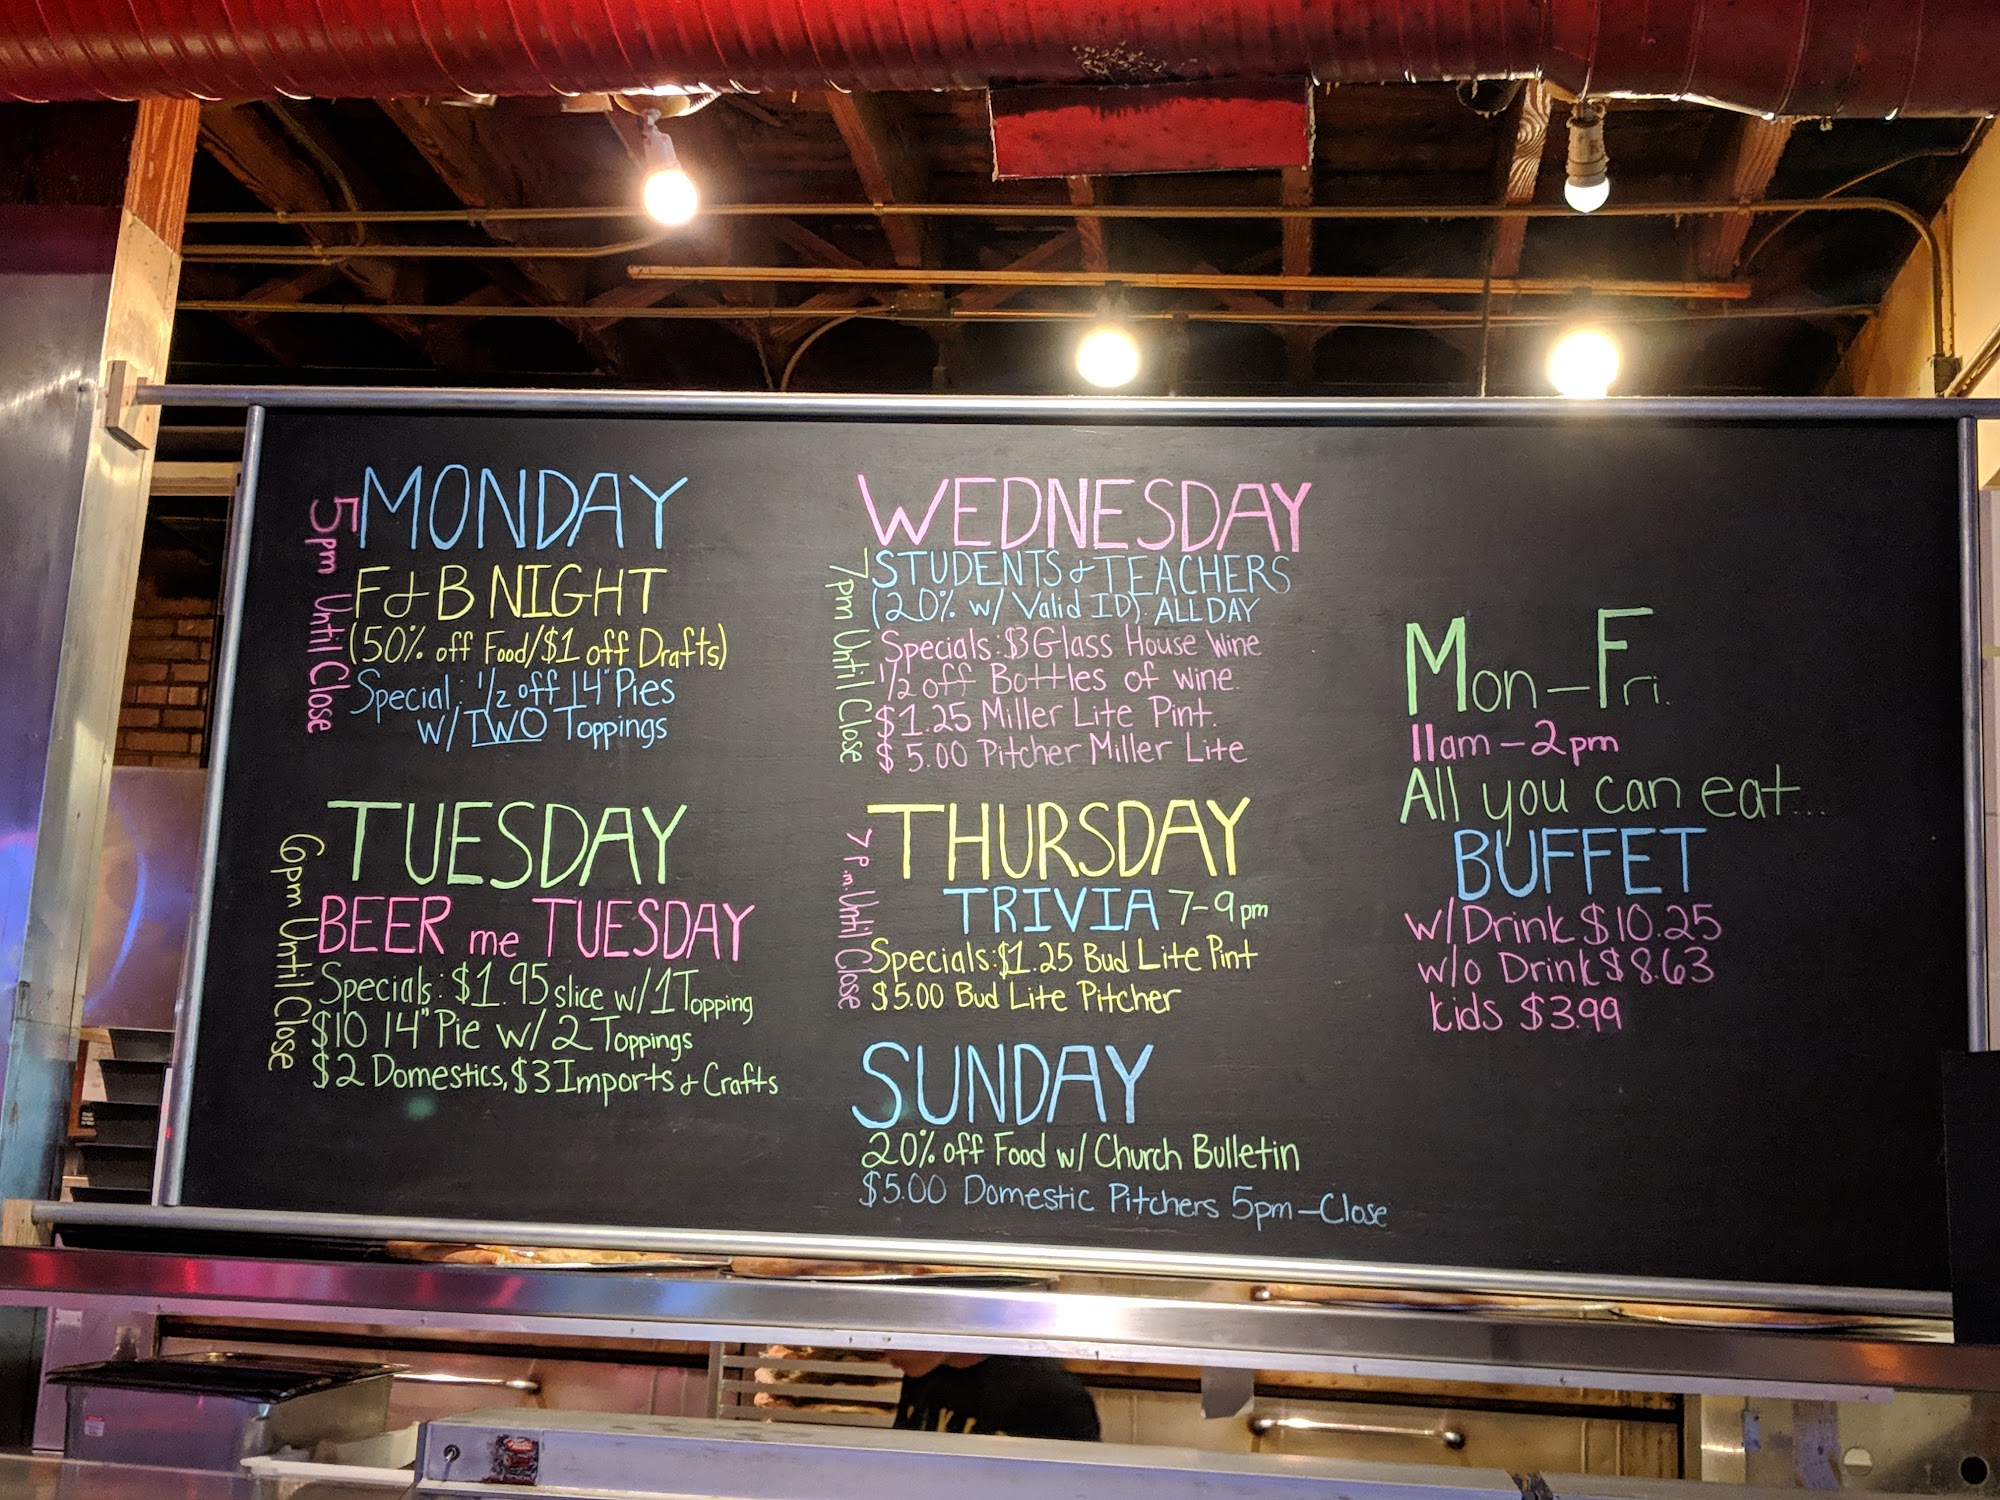 MONDAY
5pm Until Close
F & B NIGHT
(50% off Food/$1 off Drafts)
Special: 1/2 off 14" Pies
w/ TWO Toppings
TUESDAY
6pm Until Close
BEER me TUESDAY
Specials: $1.95 slice w/ 1 Topping
$10 14" Pie w/ 2 Toppings
$2 Domestics, $3 Imports & Crafts
WEDNESDAY
7pm Until Close
STUDENTS & TEACHERS
(20% w/ Valid ID). ALL DAY
Specials: $3 Glass House Wine
1/2 off Bottles of wine.
$1.25 Miller Lite Pint.
$5.00 Pitcher Miller Lite
THURSDAY
7 P.m. Until Close
TRIVIA 7-9pm
Specials: $1.25 Bud Lite Pint
$5.00 Bud Lite Pitcher
SUNDAY
20% off Food w/ Church Bulletin
$5.00 Domestic Pitchers 5pm-Close
Mon-Fri.
11am-2pm
All you can eat...
BUFFET
w/ Drink $10.25
w/o Drink $8.63
kids $3.99